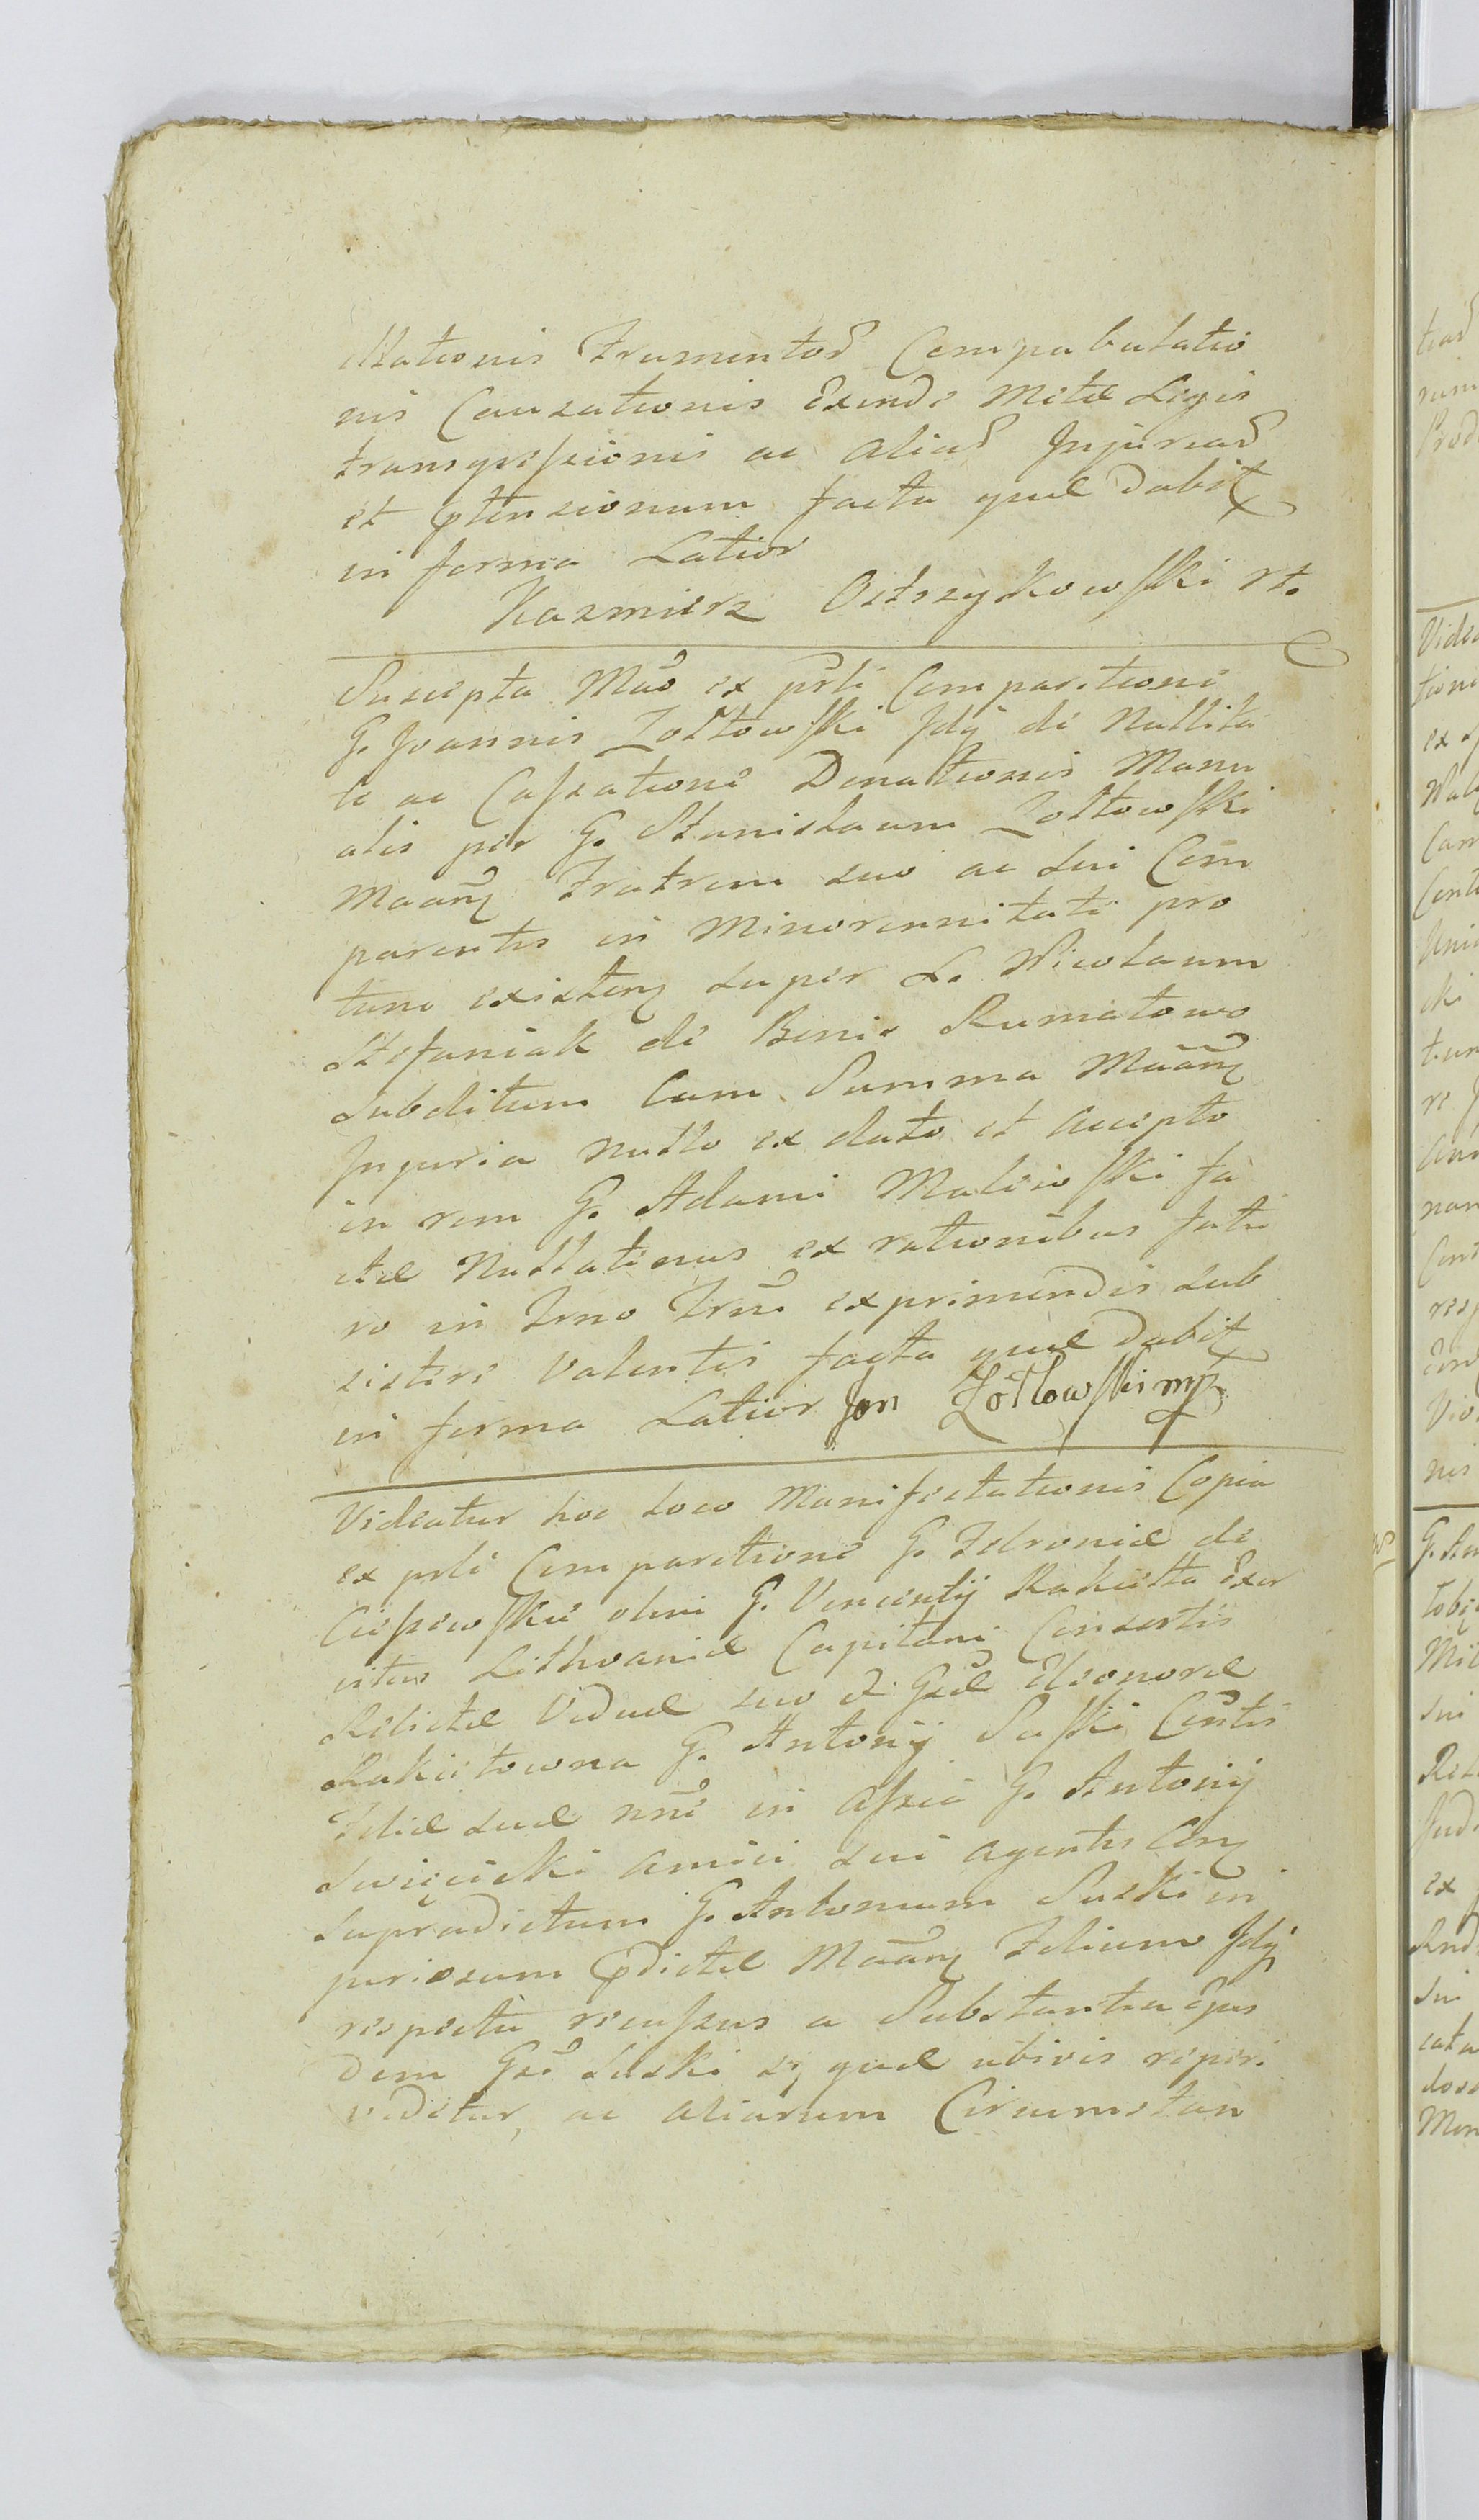 llationis Frumentor Compabulatio
nis Causationis Exinde Metæ Legis
transgreſsionis ac aliar Injuriar
et ptensionum facta quæ dabit
in forma Latior
Kazmierz Ostrzykowſki rt.
Suscepta Mão ex prli Comparitione
G. Joannis Zołtowſki Jdq de Nullita
te ac Caſsatione Donationis Manu
alis per G. Stanislaum Zołtowſki
Maanq Fratrem suo ac sui Com
parentis in Minorennitate pro
tunc existenq super L. Nicolaum
Stefaniak de Bonis Rumiatowo
Subditum Cum Summa Mãanq
Injuria nullo ex dato et accepto
in rem G. Adami Malewſki fa
ctæ Nullatenus ex rationibus futu
ro in Tmo Trii exprimendis sub
sistere Valentis facta quæ dabit
in forma Latior Jan Zołtowſki mp
Videatur hoc loco Manifestationis Copia
ex prli Comparitione G. Febroniæ de
Cieſzewſkie olim G. Vincentij Rakietta Exer
citus Lithvaniæ Capitani Consortis
Relictæ Viduæ suo et Gsæ Eleonoræ
Rakietowna G. Antonij Suſki Contis
Filiæ suæ nne in Aſsia G. Antonij
Swięcicki amici sui agentis Conq
Supradictum G. Antonium Suski in
juriosum pdictæ Maanq Filium Jdq
respectu recuſsus a Substantia Ejus
dem Gsi Suski si quæ ubivis reperi
videtur, ac aliarum Circumstan